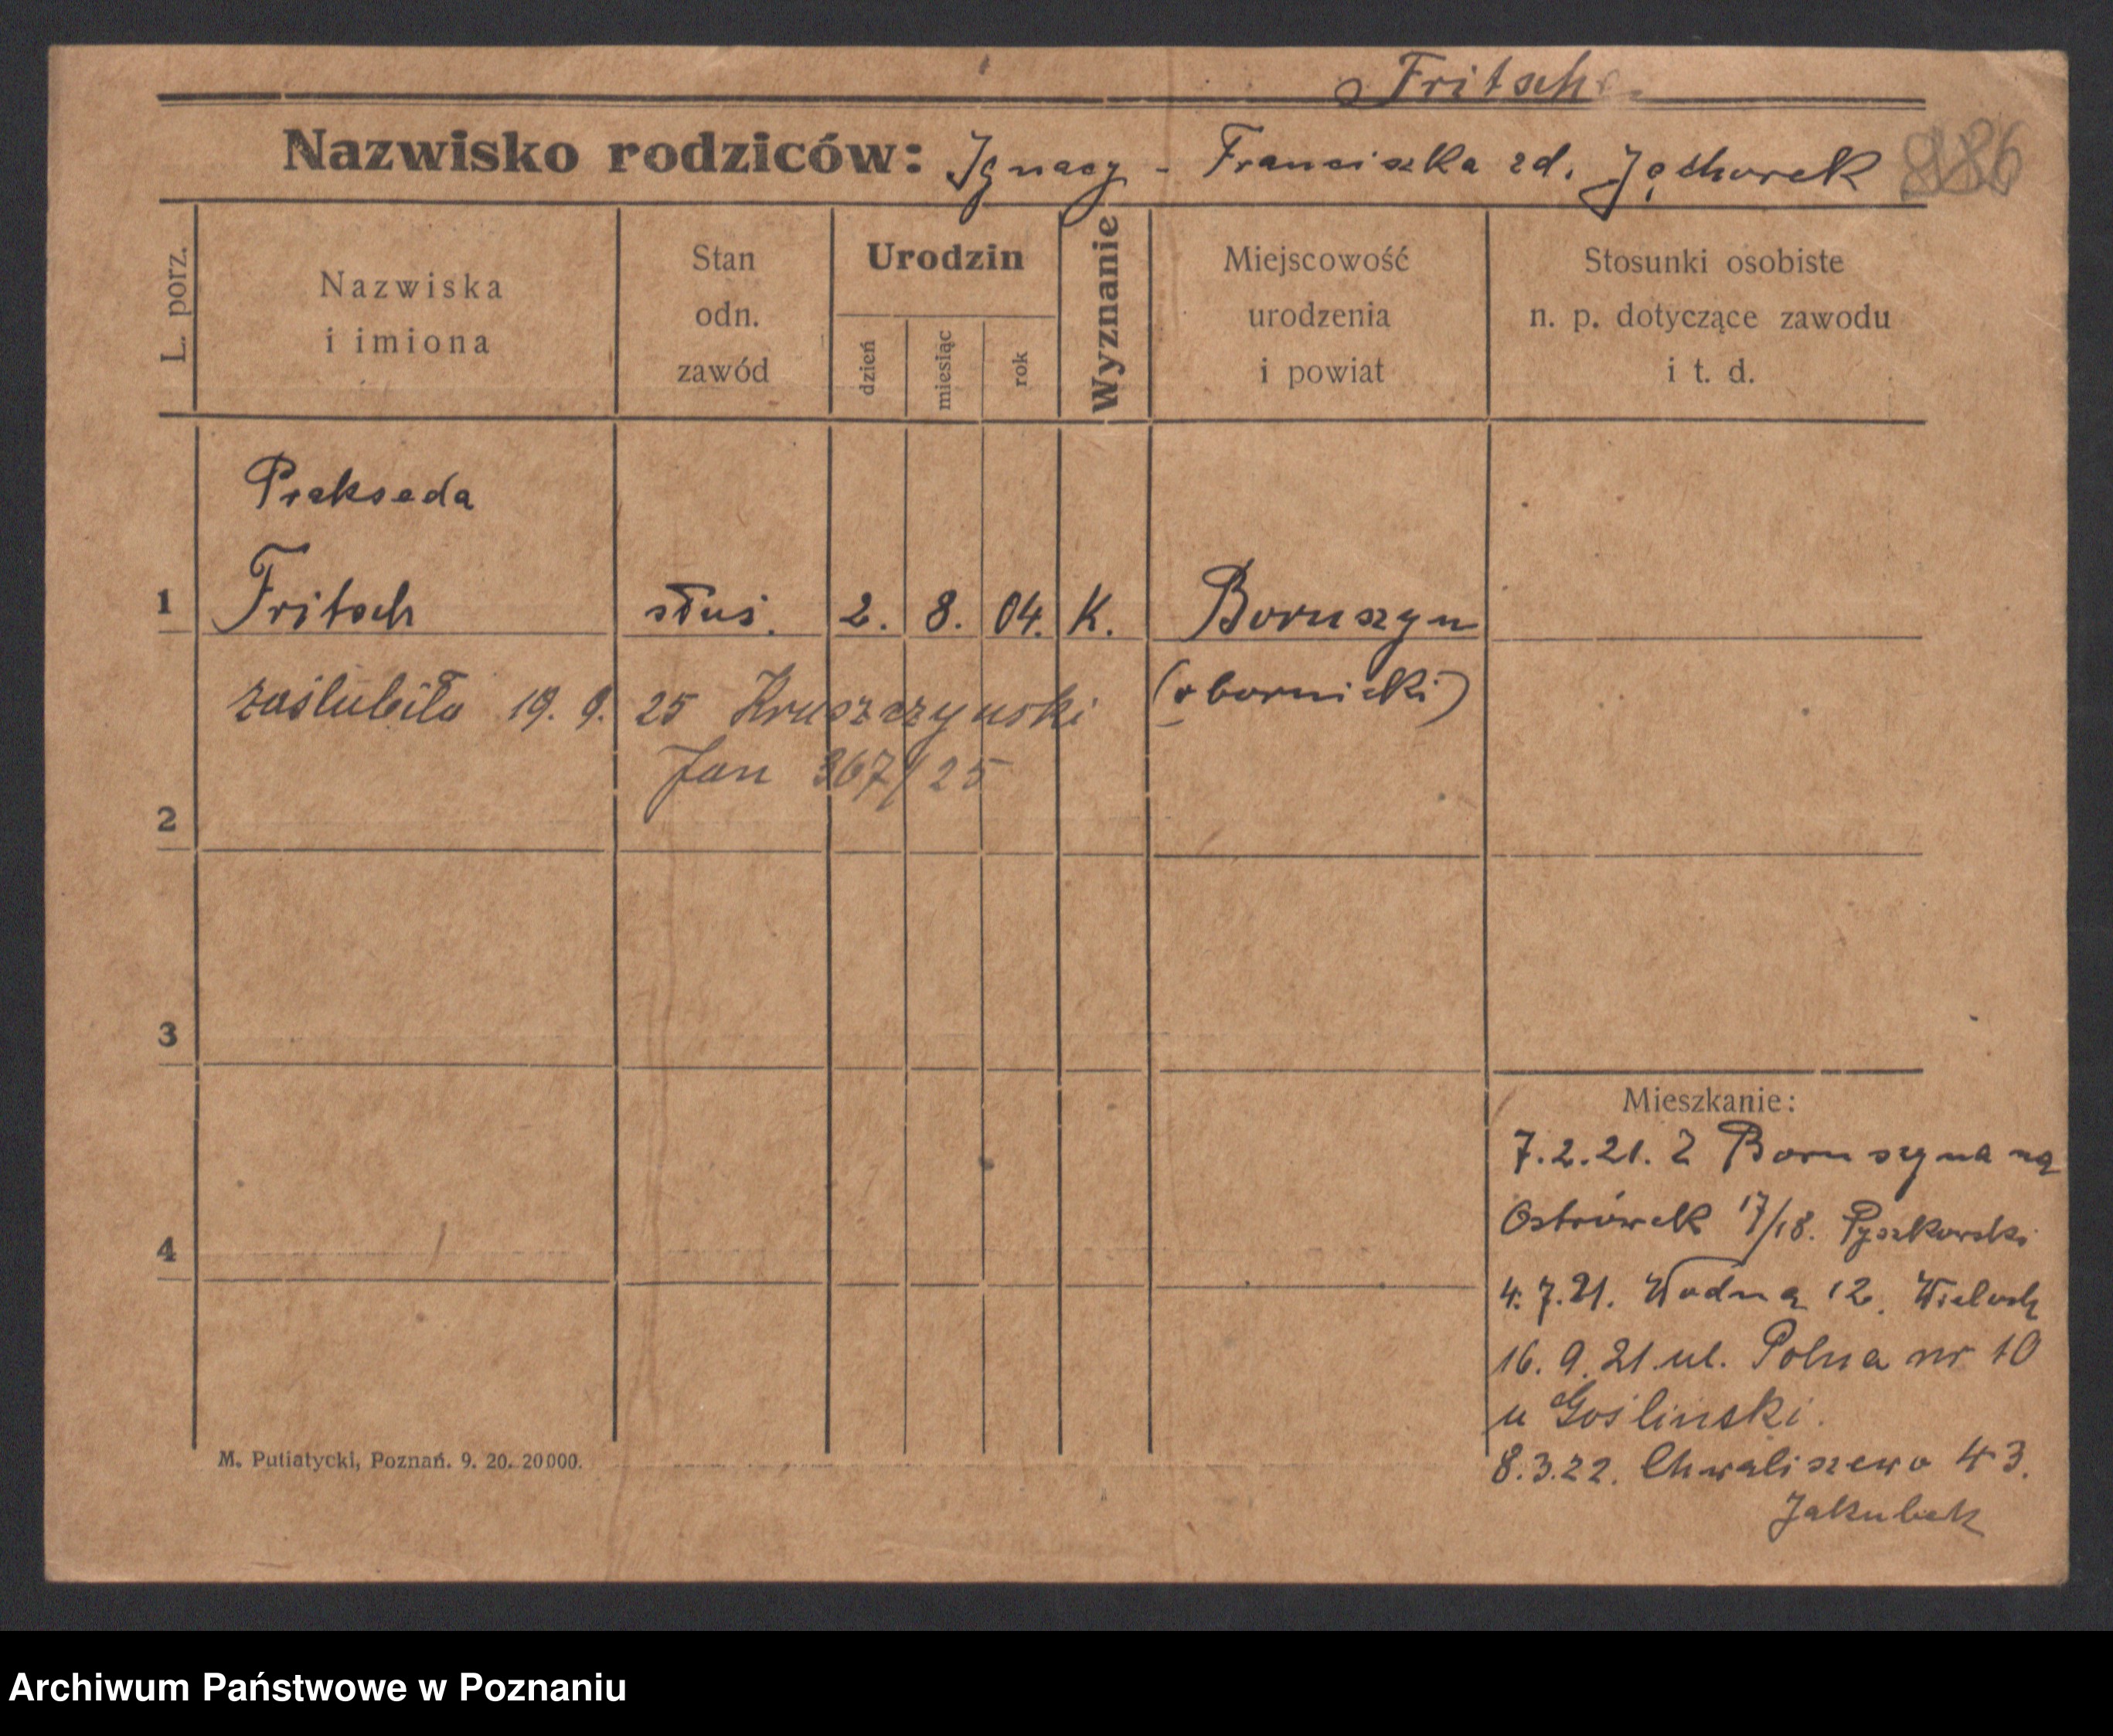 Fritsch
Nazwisko rodziców: Ignacy - Franciszka zd.
886
L. porz.
Nazwiska
i imiona
Stan
odn.
zawód
Urodzin
dzień
miesiąc
rok
Wyznanie
Miejscowość
urodzenia
i powiat
Stosunki osobiste
n. p. dotyczące zawodu
i t. d.
Prakseda
1 Fritsch służ. 2. 8. 04. K. Boruszyn
(obornicki)
zaślubiła 19. 9. 25 Kruszczynski
Jan 367/25
2
3
4
Mieszkanie:
7.2.21. Z Boruszyna na
Ostrówek 17/18. Pyszkowski
4.7.21. Wodna 12.
16. 9. 21. ul. Polna nr 10
u Goślinski.
8.3.22. Chwaliszewo 43.
Jakubek
M. Putiatycki, Poznań. 9. 20. 20000.
Archiwum Państwowe w Poznaniu